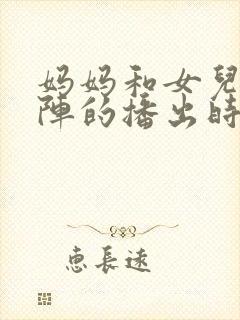 妈妈和女兒
陣的播出時
惠長遠